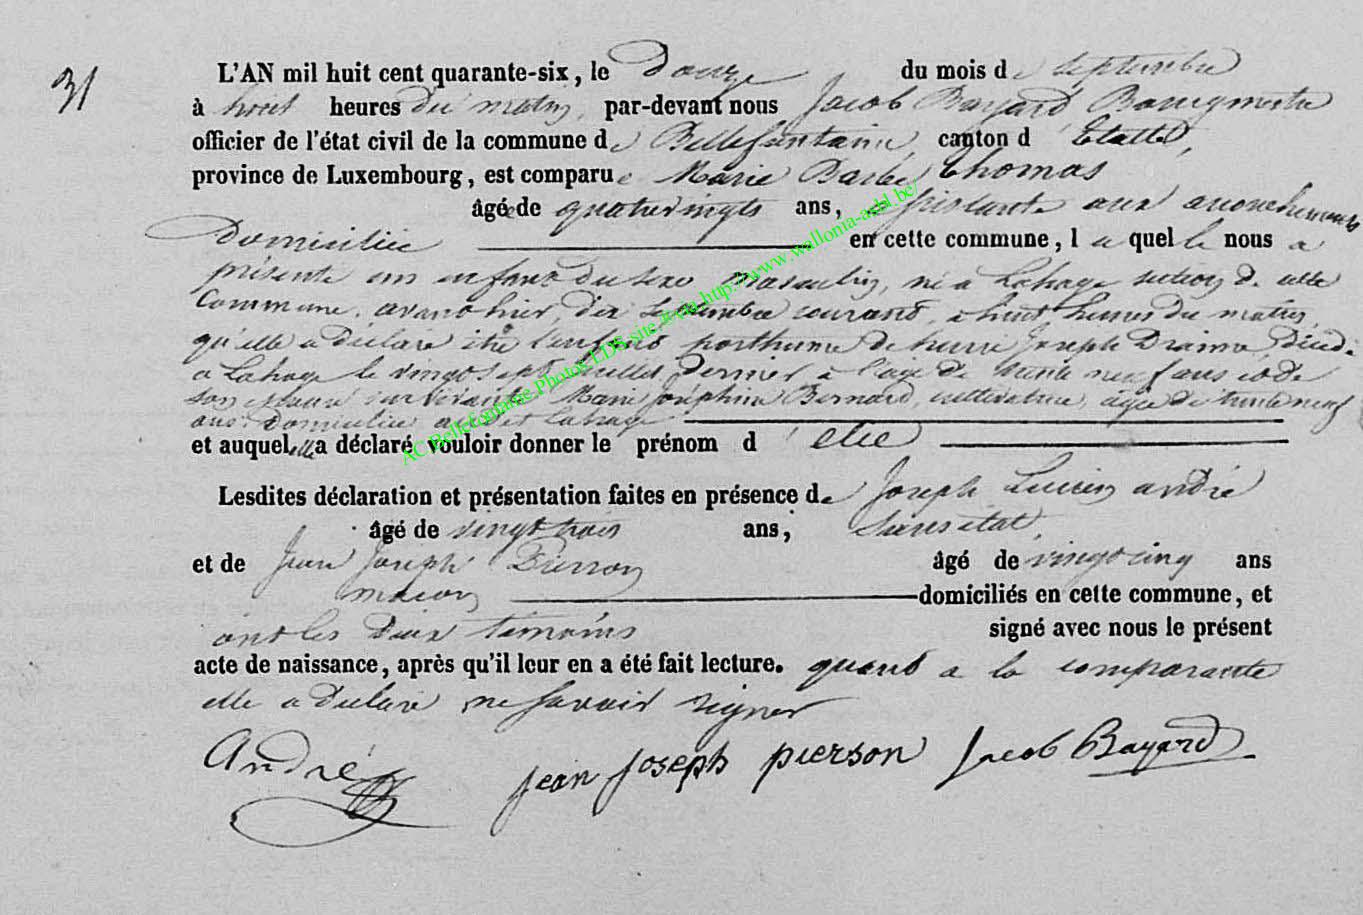 31
L'AN mil huit cent quarante-six, le Douze du mois de Septembre
à huit heures du matin, par-devant nous Jacob Bayard Bourgmestre
officier de l'état civil de la commune de Bellefontaine, canton d'Etalle,
province de Luxembourg, est comparue Marie Barbe Thomas
âgée de quatrevingts ans, assistante aux accouchements
Domiciliée en cette commune, laquelle nous a
présenté un enfant du sexe Masculin, né à Lahage section de cette
Commune, avant hier, dix Septembre courant, à huit heures du matin,
qu'elle a déclaré être l'enfant posthume de Pierre Joseph Draime, Décédé
a Lahage le vingt sept juillet Dernier à l'age de trente neuf ans et de
son épouse survivante Marie Joséphine Bernard, cultivatrice, agée de trente neuf
ans, Domiciliée Lahage
et auquel elle a déclaré vouloir donner le prénom d'elie
Lesdites déclaration et présentation faites en présence de Joseph Lucien andré
âgé de vingt trois ans, Sans état,
et de Jean Joseph Pierson âgé de vingt cinq ans
macon domiciliés en cette commune, et
ont les deux témoins signé avec nous le présent
acte de naissance, après qu'il leur en a été fait lecture. quant a la comparante
elle a déclaré ne savoir signer
André Jean Joseph pierson Jacob Bayard
AC Bellefontaine Photos LDS site.fr via http://www.wallonia-asbl.be/